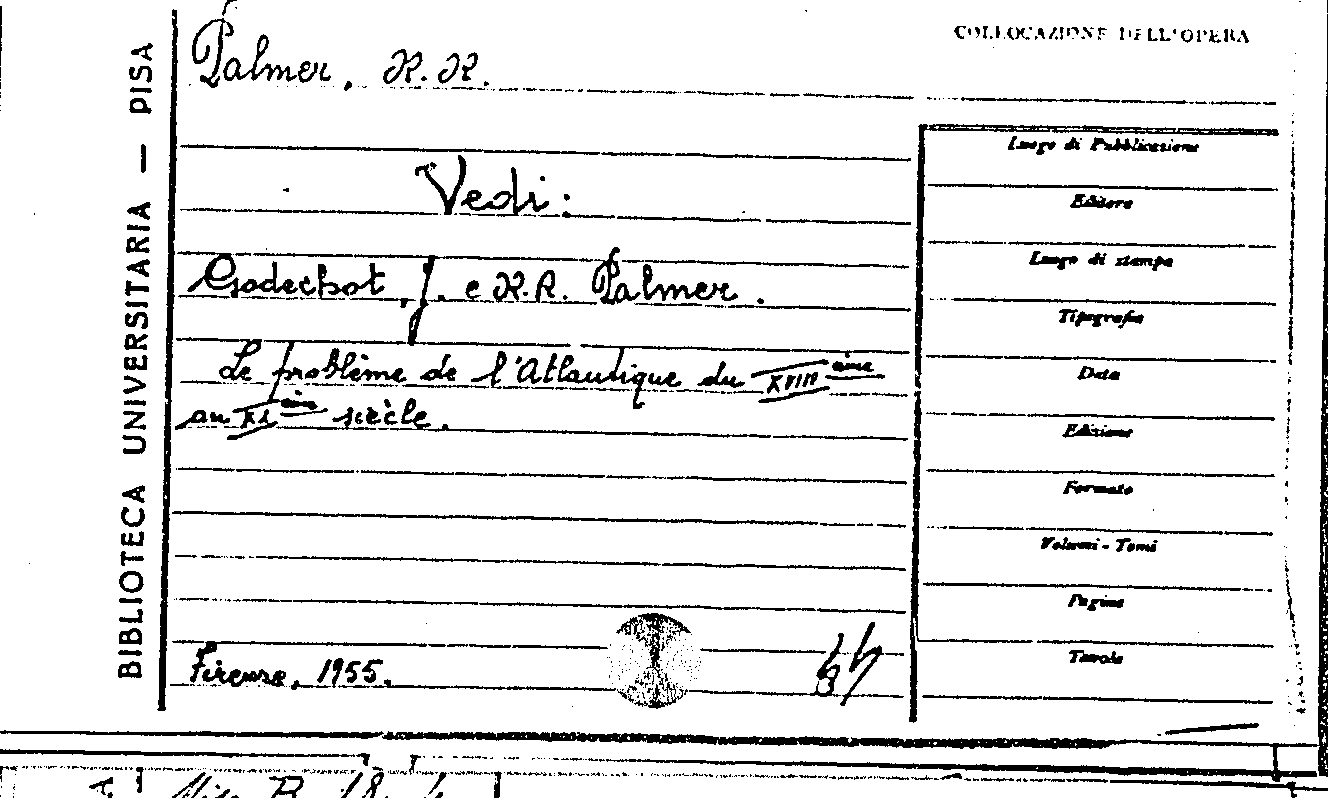 COLLOCAZIONE DELL'OPERA
BIBLIOTECA UNIVERSITARIA — PISA
Palmer, R. R.
Vedi:
Godechot, J. e R. R. Palmer.
Le problème de l'Atlantique du XVIII ème
au XX ème siècle.
Firenze, 1955.
Luogo di Pubblicazione
Editore
Luogo di stampa
Tipografia
Data
Edizione
Formato
Volumi - Tomi
Pagine
Tavole